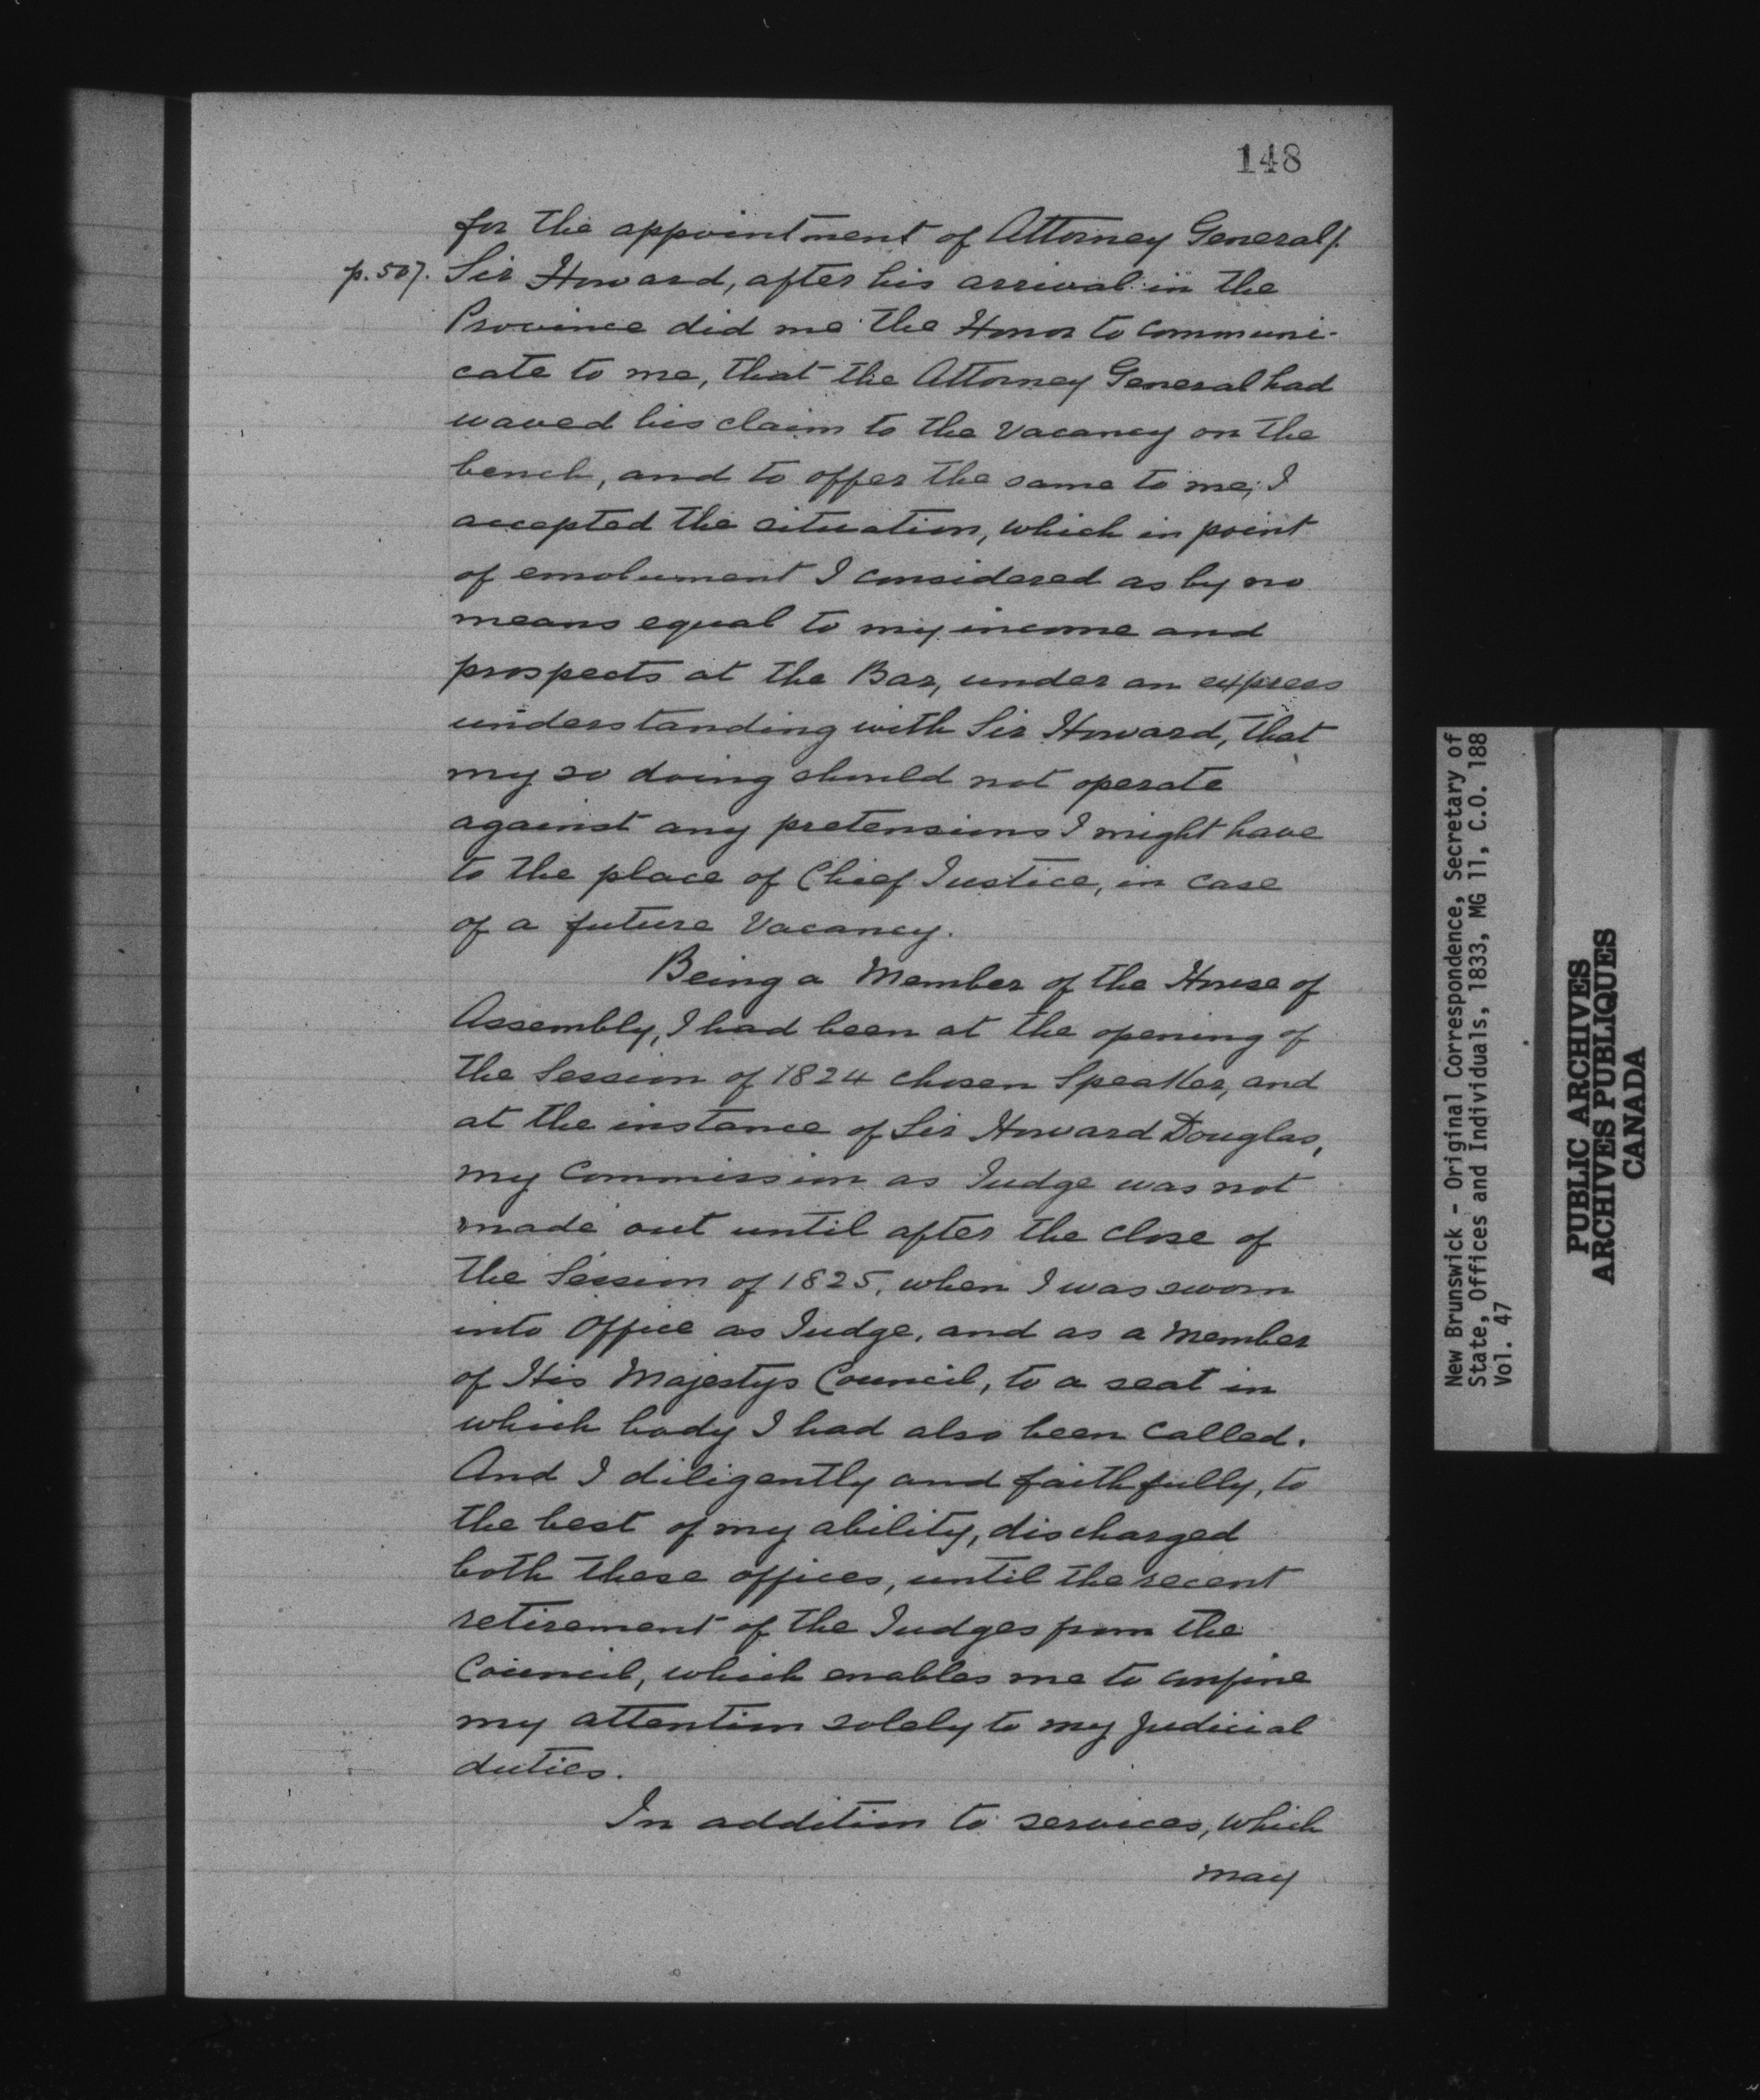 148
for the appointment of Attorney General/.
p. 507. Sir Howard, after his arrival in the
Province did me the Honor to communi-
cate to me, that the Attorney General had
waved his claim to the vacancy on the
bench, and to offer the same to me; I
accepted the situation, which in point
of emolument I considered as by no
means equal to my income and
prospects at the Bar, under an express
understanding with Sir Howard, that
my so doing should not operate
against any pretensions I might have
to the place of Chief Justice, in case
of a future Vacancy.
Being a Member of the House of
Assembly, I had been at the opening of
the Session of 1824 chosen Speaker, and
at the instance of Sir Howard Douglas,
my Commission as Judge was not
made out until after the close of
the Session of 1825, when I was sworn
into Office as Judge, and as a Member
of His Majestys Council, to a seat in
which body I had also been called.
And I diligently and faithfully, to
the best of my ability, discharged
both these offices, until the recent
retirement of the Judges from the
Council, which enables me to confine
my attention solely to my Judicial
duties.
In addition to services, which
may
New Brunswick - Original Correspondence, Secretary of
State, Offices and Individuals, 1833, MG 11, C.O. 188
Vol. 47
PUBLIC ARCHIVES
ARCHIVES PUBLIQUES
CANADA